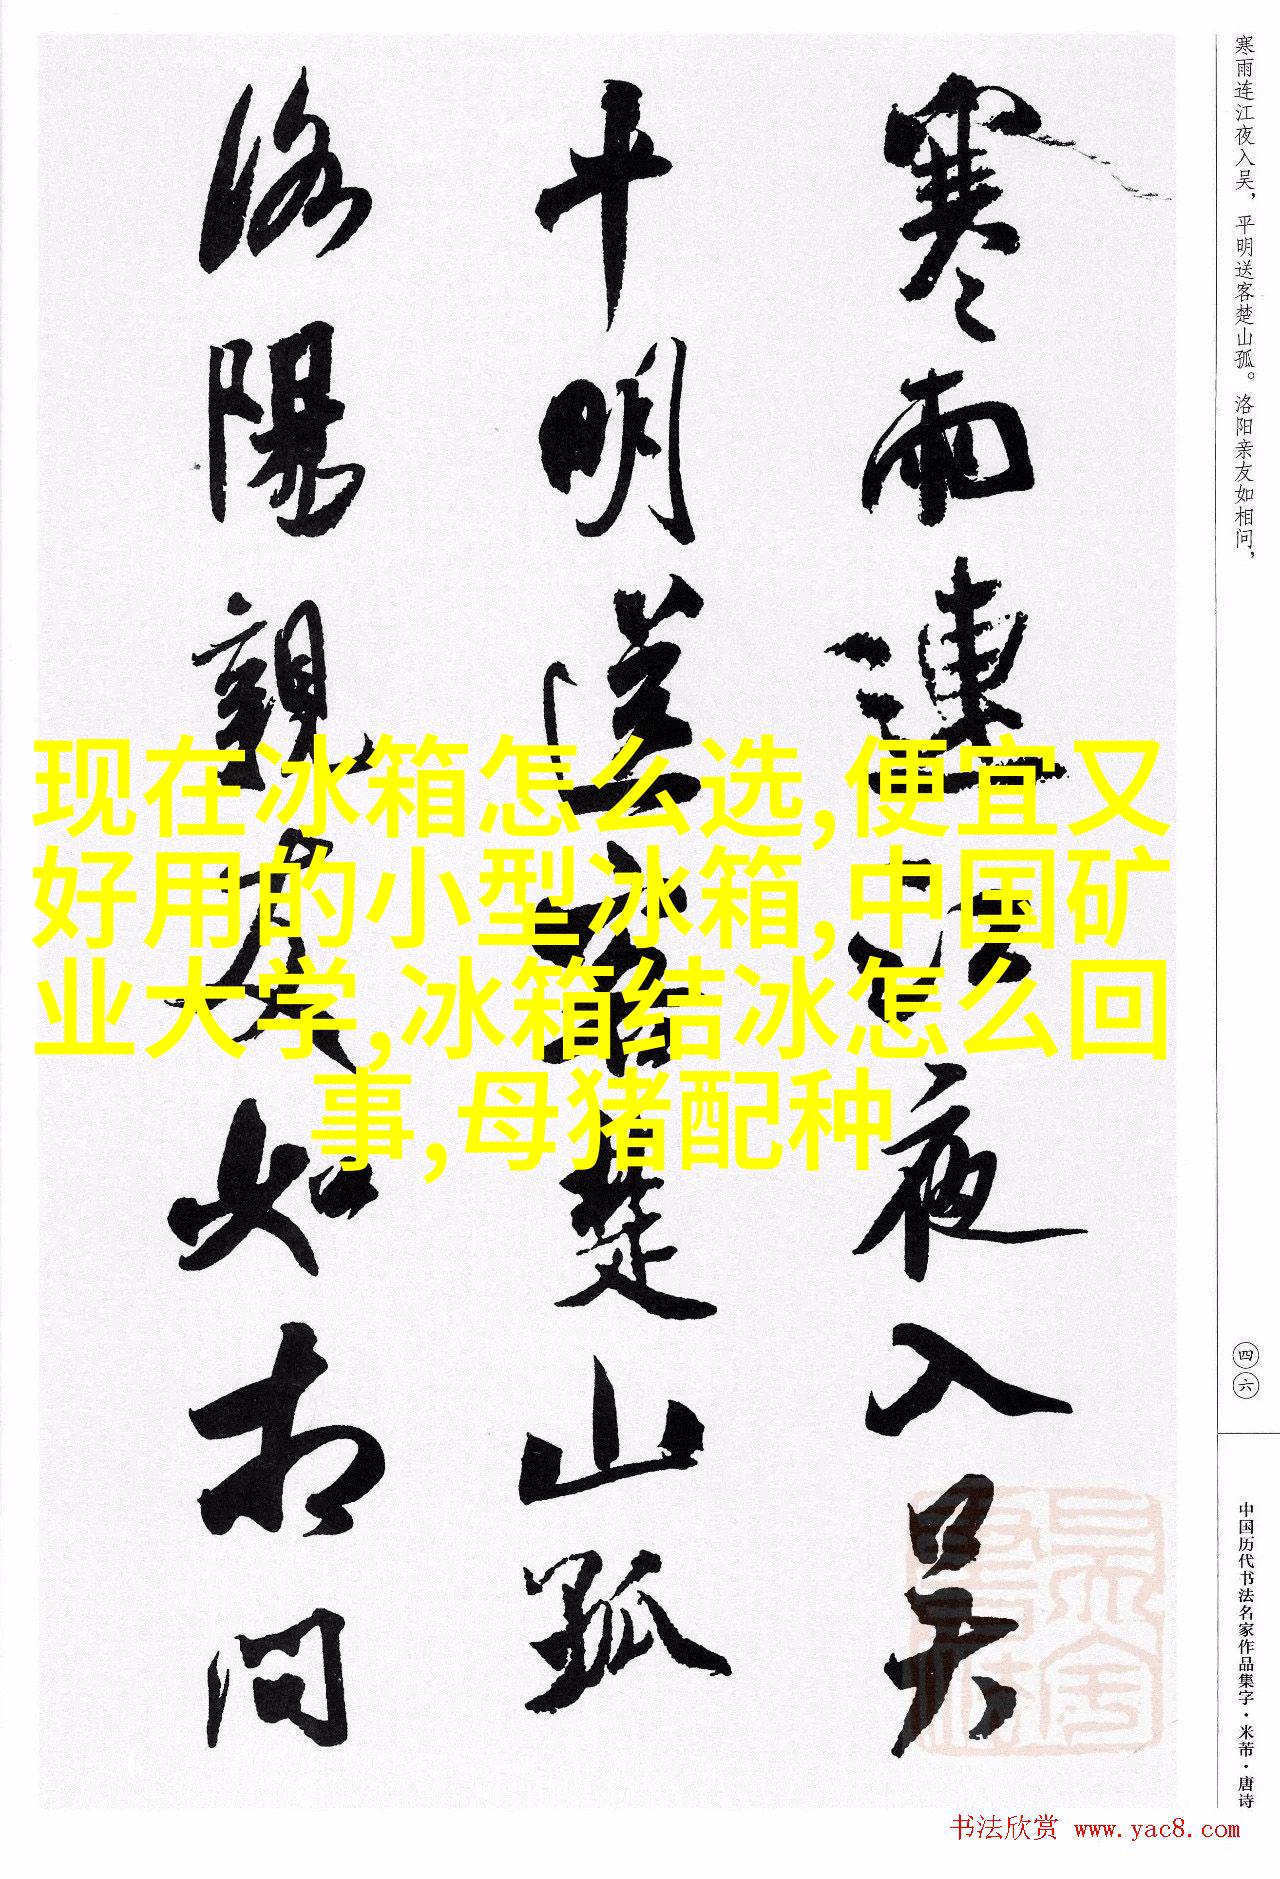 寒雨连江夜入吴，平明送客楚山孤。洛阳亲友如相问，
寒雨連江夜入吴
平明送客楚山孤
洛陽親友如相問
现在冰箱怎么选,便宜又
好用的小型冰箱,中国矿
业大学,冰箱结冰怎么回
事,母猪配种
四六
中国历代书法名家作品集字·米芾·唐诗
书法欣赏 www.yac8.com